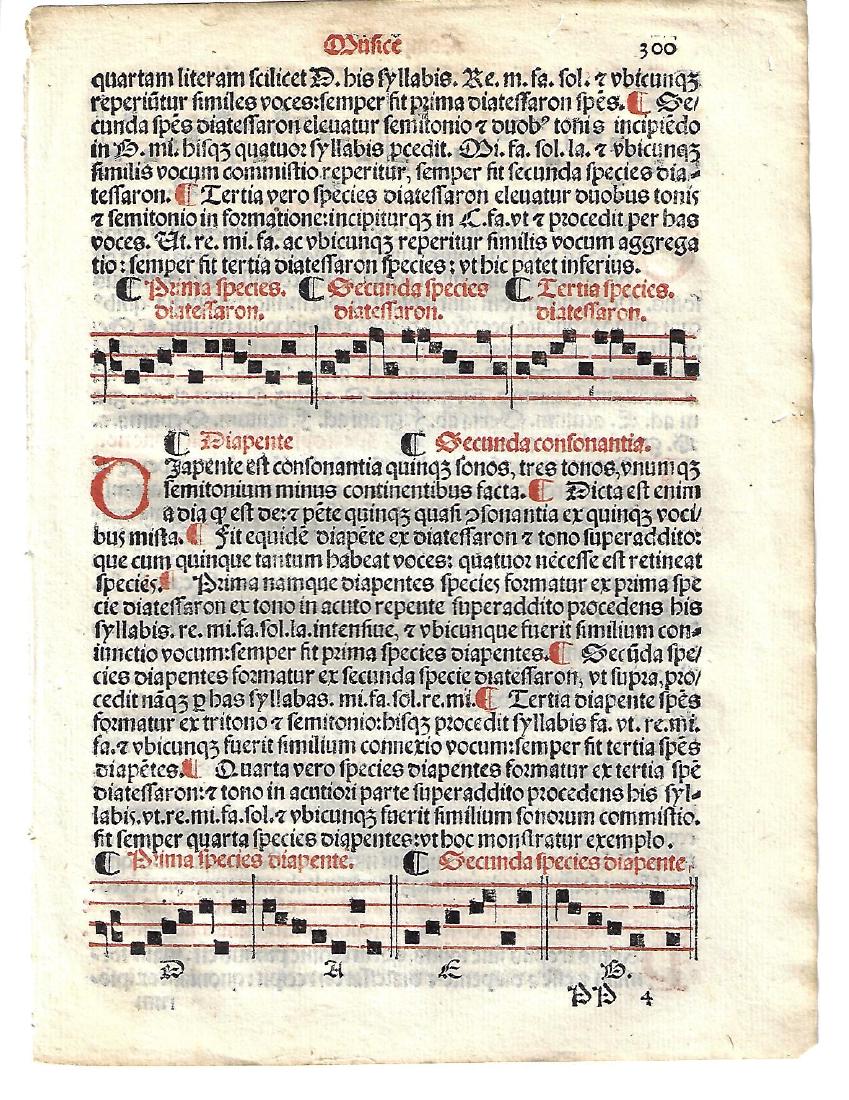 Musicē 300
quartam literam scilicet D. his syllabis. Re. m. fa. sol. ⁊ vbicunqꝫ
reperiūtur similes voces:semper fit prima diatessaron spēs. ¶ Se/
cunda spēs diatessaron eleuatur semitonio ⁊ duobꝰ tonis incipiēdo
in B. mi. hisqꝫ quatuor syllabis ꝓcedit. Mi. fa. sol. la. ⁊ vbicunqꝫ
similis vocum commistio reperitur, semper fit secunda species dia-
tessaron. ¶ Tertia vero species diatessaron eleuatur duobus tonis
⁊ semitonio in formatione:incipiturqꝫ in C.fa.vt ⁊ procedit per has
voces. Ut. re. mi. fa. ac vbicunqꝫ reperitur similis vocum aggrega
tio : semper fit tertia diatessaron species : vt hic patet inferius.
¶ Prima species. ¶ Secunda species ¶ Tertia species.
diatessaron. diatessaron. diatessaron.
¶ Diapente ¶ Secunda consonantia.
DIapente est consonantia quinqꝫ sonos, tres tonos,vnum qꝫ
semitonium minus continentibus facta. ¶ Dicta est enim
a dia qđ est de:⁊ pēte quinqꝫ quasi ↄsonantia ex quinqꝫ voci/
bus mista. ¶ Fit equidē diapēte ex diatessaron ⁊ tono superaddito:
que cum quinque tantum habeat voces: quatuor necesse est retineat
species. ¶ Prima namque diapentes species formatur ex prima spe
cie diatessaron ex tono in acuto repente superaddito procedens his
syllabis. re. mi.fa.sol.la.intensiue, ⁊ vbicunque fuerit similium con-
iunctio vocum:semper fit prima species diapentes. ¶ Secūda spe/
cies diapentes formatur ex secunda specie diatessaron, vt supra,pro/
cedit nāqꝫ ꝑ has syllabas. mi.fa.sol.re.mi. ¶ Tertia diapente spēs
formatur ex tritono ⁊ semitonio:hisqꝫ procedit syllabis fa. vt. re.mi.
fa.⁊ vbicunqꝫ fuerit similium connexio vocum:semper fit tertia spēs
diapētes. ¶ Quarta vero species diapentes formatur ex tertia spē
diatessaron:⁊ tono in acutiori parte superaddito procedens his syl-
labis.vt.re.mi.fa.sol.⁊ vbicunqꝫ fuerit similium sonorum commistio.
fit semper quarta species diapentes:vt hoc monstratur exemplo.
¶ Prima species diapente. ¶ Secunda species diapente
D A E B.
PP 4